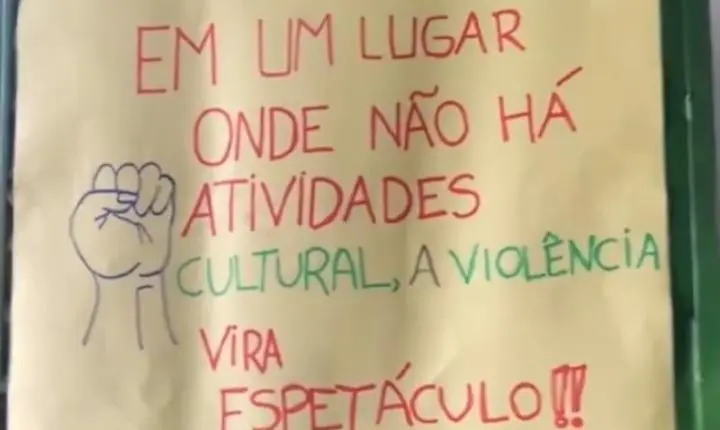 EM UM LUGAR
ONDE NÃO HÁ
ATIVIDADES
CULTURAL, A VIOLÊNCIA
VIRA
ESPETÁCULO!!